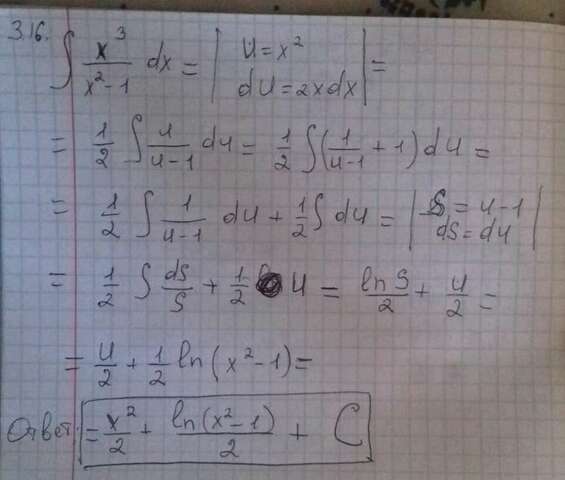 3.16.
∫ x³/(x²-1) dx = | u = x² du = 2xdx | =
= 1/2 ∫ u/(u-1) du = 1/2 ∫ (1/(u-1) + 1) du =
= 1/2 ∫ 1/(u-1) du + 1/2 ∫ du = | S = u-1 dS = du |
= 1/2 ∫ dS/S + 1/2 u = ln S/2 + u/2 =
= u/2 + 1/2 ln(x²-1) =
Ответ: = x²/2 + ln(x²-1)/2 + C